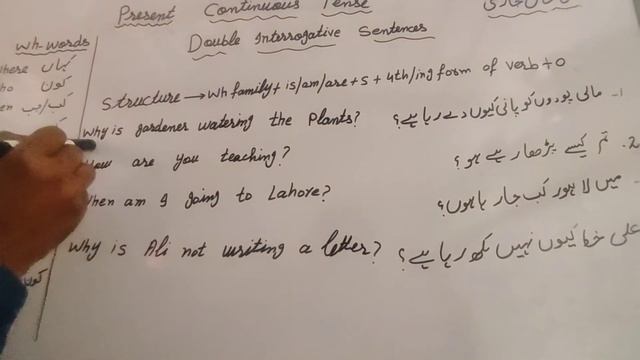 Present Continuous Tense
Double Interrogative Sentences
Wh-words
here کہاں
ho کون
en کب/جب
Structure → Wh family + is/am/are + S + 4th/ing form of verb + O
Why is gardener watering the Plants? مالی پودوں کو پانی کیوں دے رہا ہے؟ ۔1
How are you teaching? تم کیسے پڑھا رہے ہو؟ ۔2
When am I going to Lahore? میں لاہور کب جا رہا ہوں؟
Why is Ali not writing a letter? علی خط کیوں نہیں لکھ رہا ہے؟